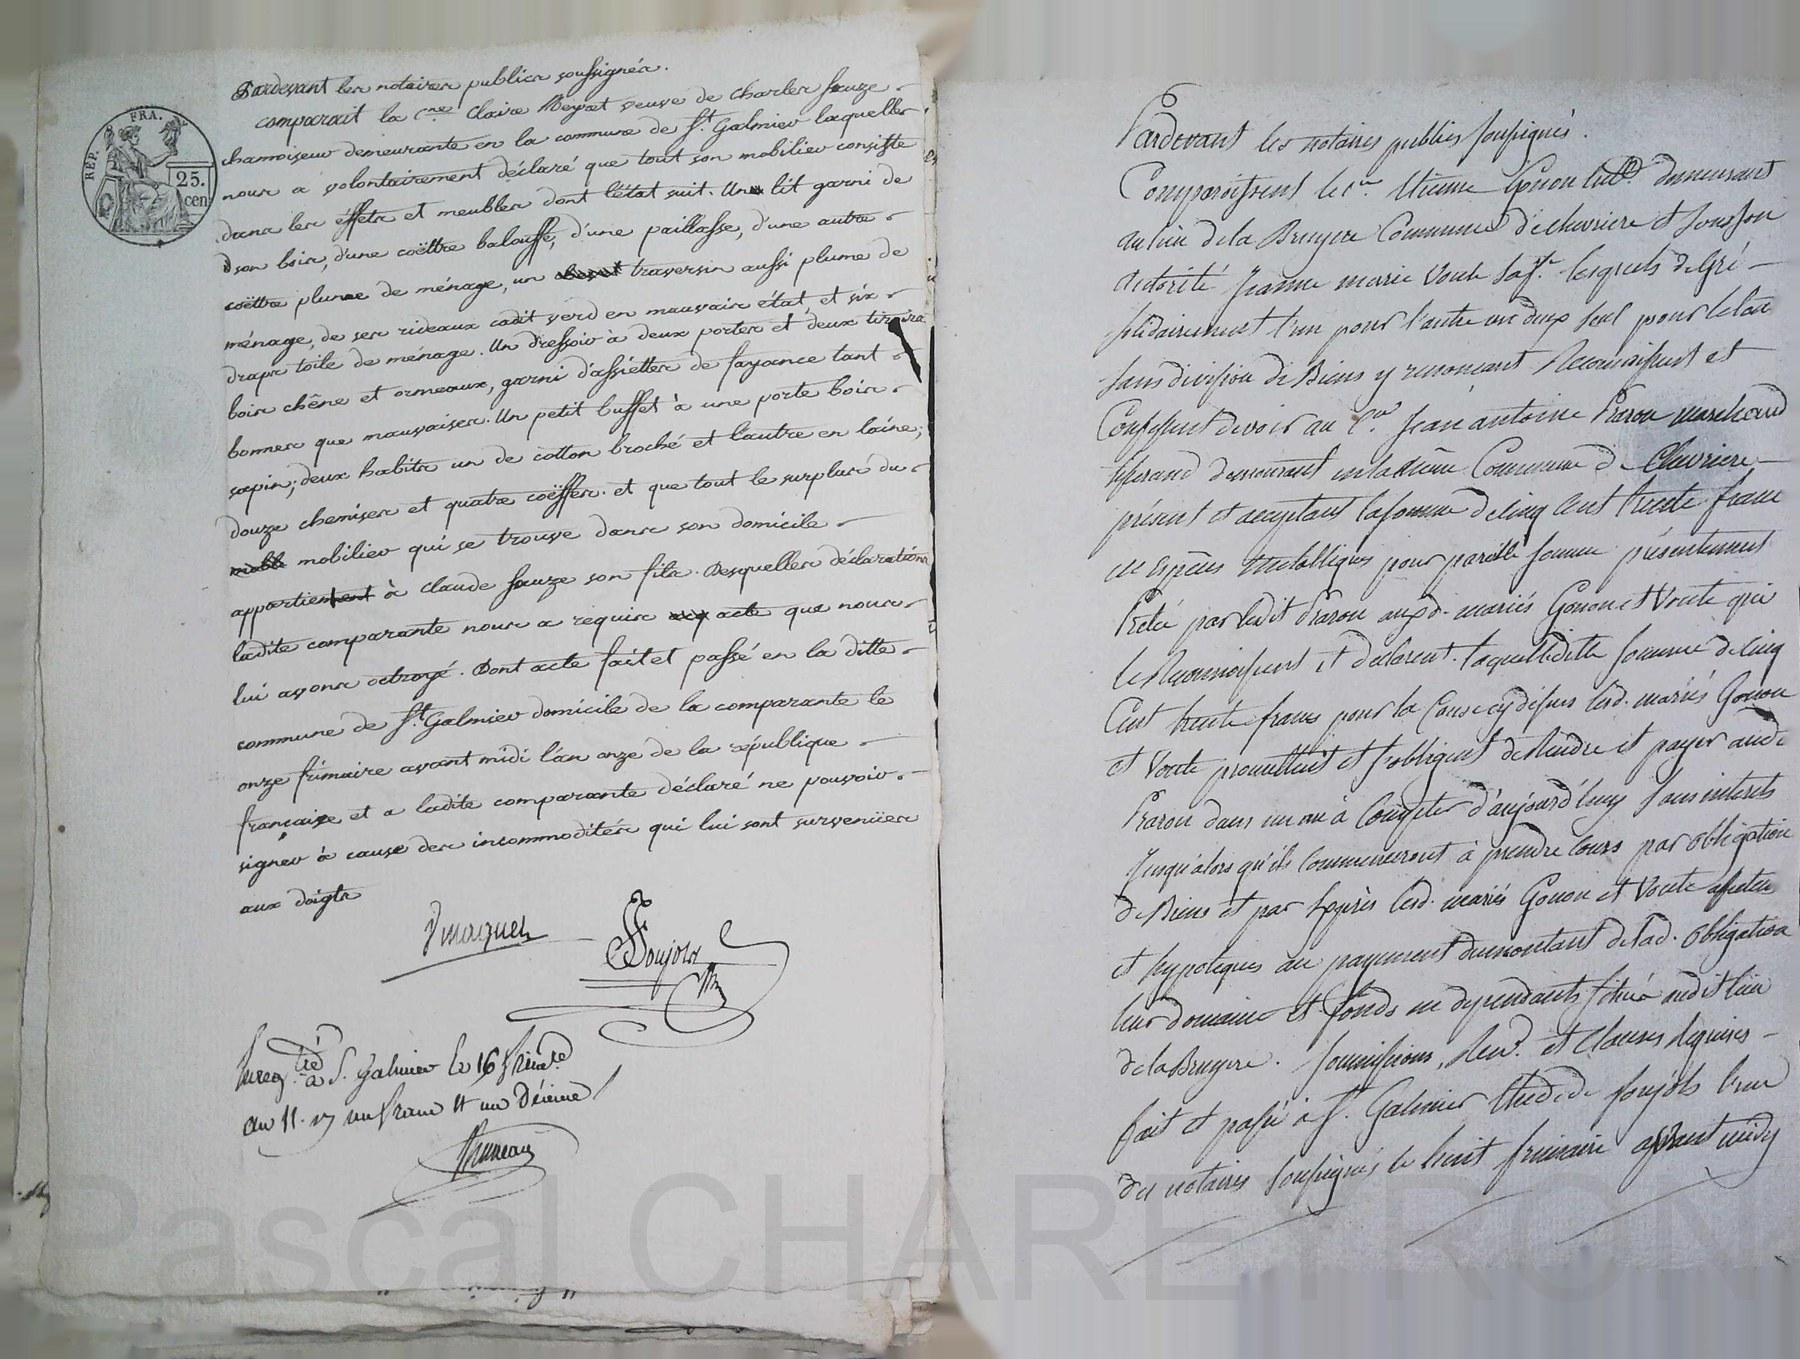 Pardevant les notaires publics soussignés.
comparait la Cne Claire Meyret veuve de Charles Sauze
chamoiseur demeurante en la commune de St Galmier laquelle
nous a volontairement déclaré que tout son mobilier consiste
dans les éffets et meubles dont l'état suit. Un lit garni de
son bois, d'une coëttre balouffe, d'une paillasse, d'une autre
coëttre plume de ménage, un traversin aussi plume de
ménage, de ses rideaux cadit verd en mauvais état et six
draps toile de ménage. Un dressoir à deux portes et deux tiroirs
bois chêne et ormeaux, garni d'assiettes de fayance tant
bonnes que mauvaises. Un petit buffet à une porte bois
sapin; deux habits un de cotton broché et l'autre en laine;
douze chemises et quatre coëffes. et que tout le surplus du
mobilier qui se trouve dans son domicile
appartient à Claude Sauze son fils. Desquelles déclarations
ladite comparante nous a requis acte que nous
lui avons octroyé. Dont acte fait et passé en la ditte
commune de St Galmier domicile de la comparante le
onze frimaire avant midi l'an onze de la république
française et a ladite comparante déclaré ne pouvoir
signer à cause des incommodités qui lui sont survenües
aux doigts
Soujols
Enregtré à St Galmier le 16 frimre
an 11. un franc et un Décime
REP. FRA.
25.
cen
Pardevant les notaires publics soussignés.
Comparoissent le Cen Etienne Gonon demeurant
au lieu de la Bruyere Commune de chevriere et sous son
autorité Jeanne marie Voute sa fe. lesquels de gré
solidairement l'un pour l'autre un deux seul pour le tout
sans division de Biens y renoncant Reconnoissent et
Confessent devoir au Cen Jean antoine Praron marchand
tisserand demeurant en la même Commune de Chevriere
présent et acceptant la somme de cinq Cent trente francs
en espèces métalliques pour pareille somme présentement
Prêtée par ledit Praron auxd. mariés Gonon et Voute qui
le Reconnoissent et déclarent. laquelle ditte somme de cinq
Cent trente francs pour la Cause cy dessus lesd. mariés Gonon
et Voute promettent et s'obligent de Rendre et payer aud.
Praron dans un an à Compter d'aujourd'huy sans interets
Jusqu'alors qu'ils commenceront à prendre cours par obligation
de Biens et par Exprès lesd. mariés Gonon et Voute affectent
et hypoteques au payement du montant de lad. obligation
leur domaine et fonds en dependants situé audit lieu
de la Bruyere. Soumissions, Renon. et Clauses Requises
fait et passé à St. Galmier Etude de Soujols l'un
des notaires soussignés le huit frimaire avant midy
Pascal CHAREYRON